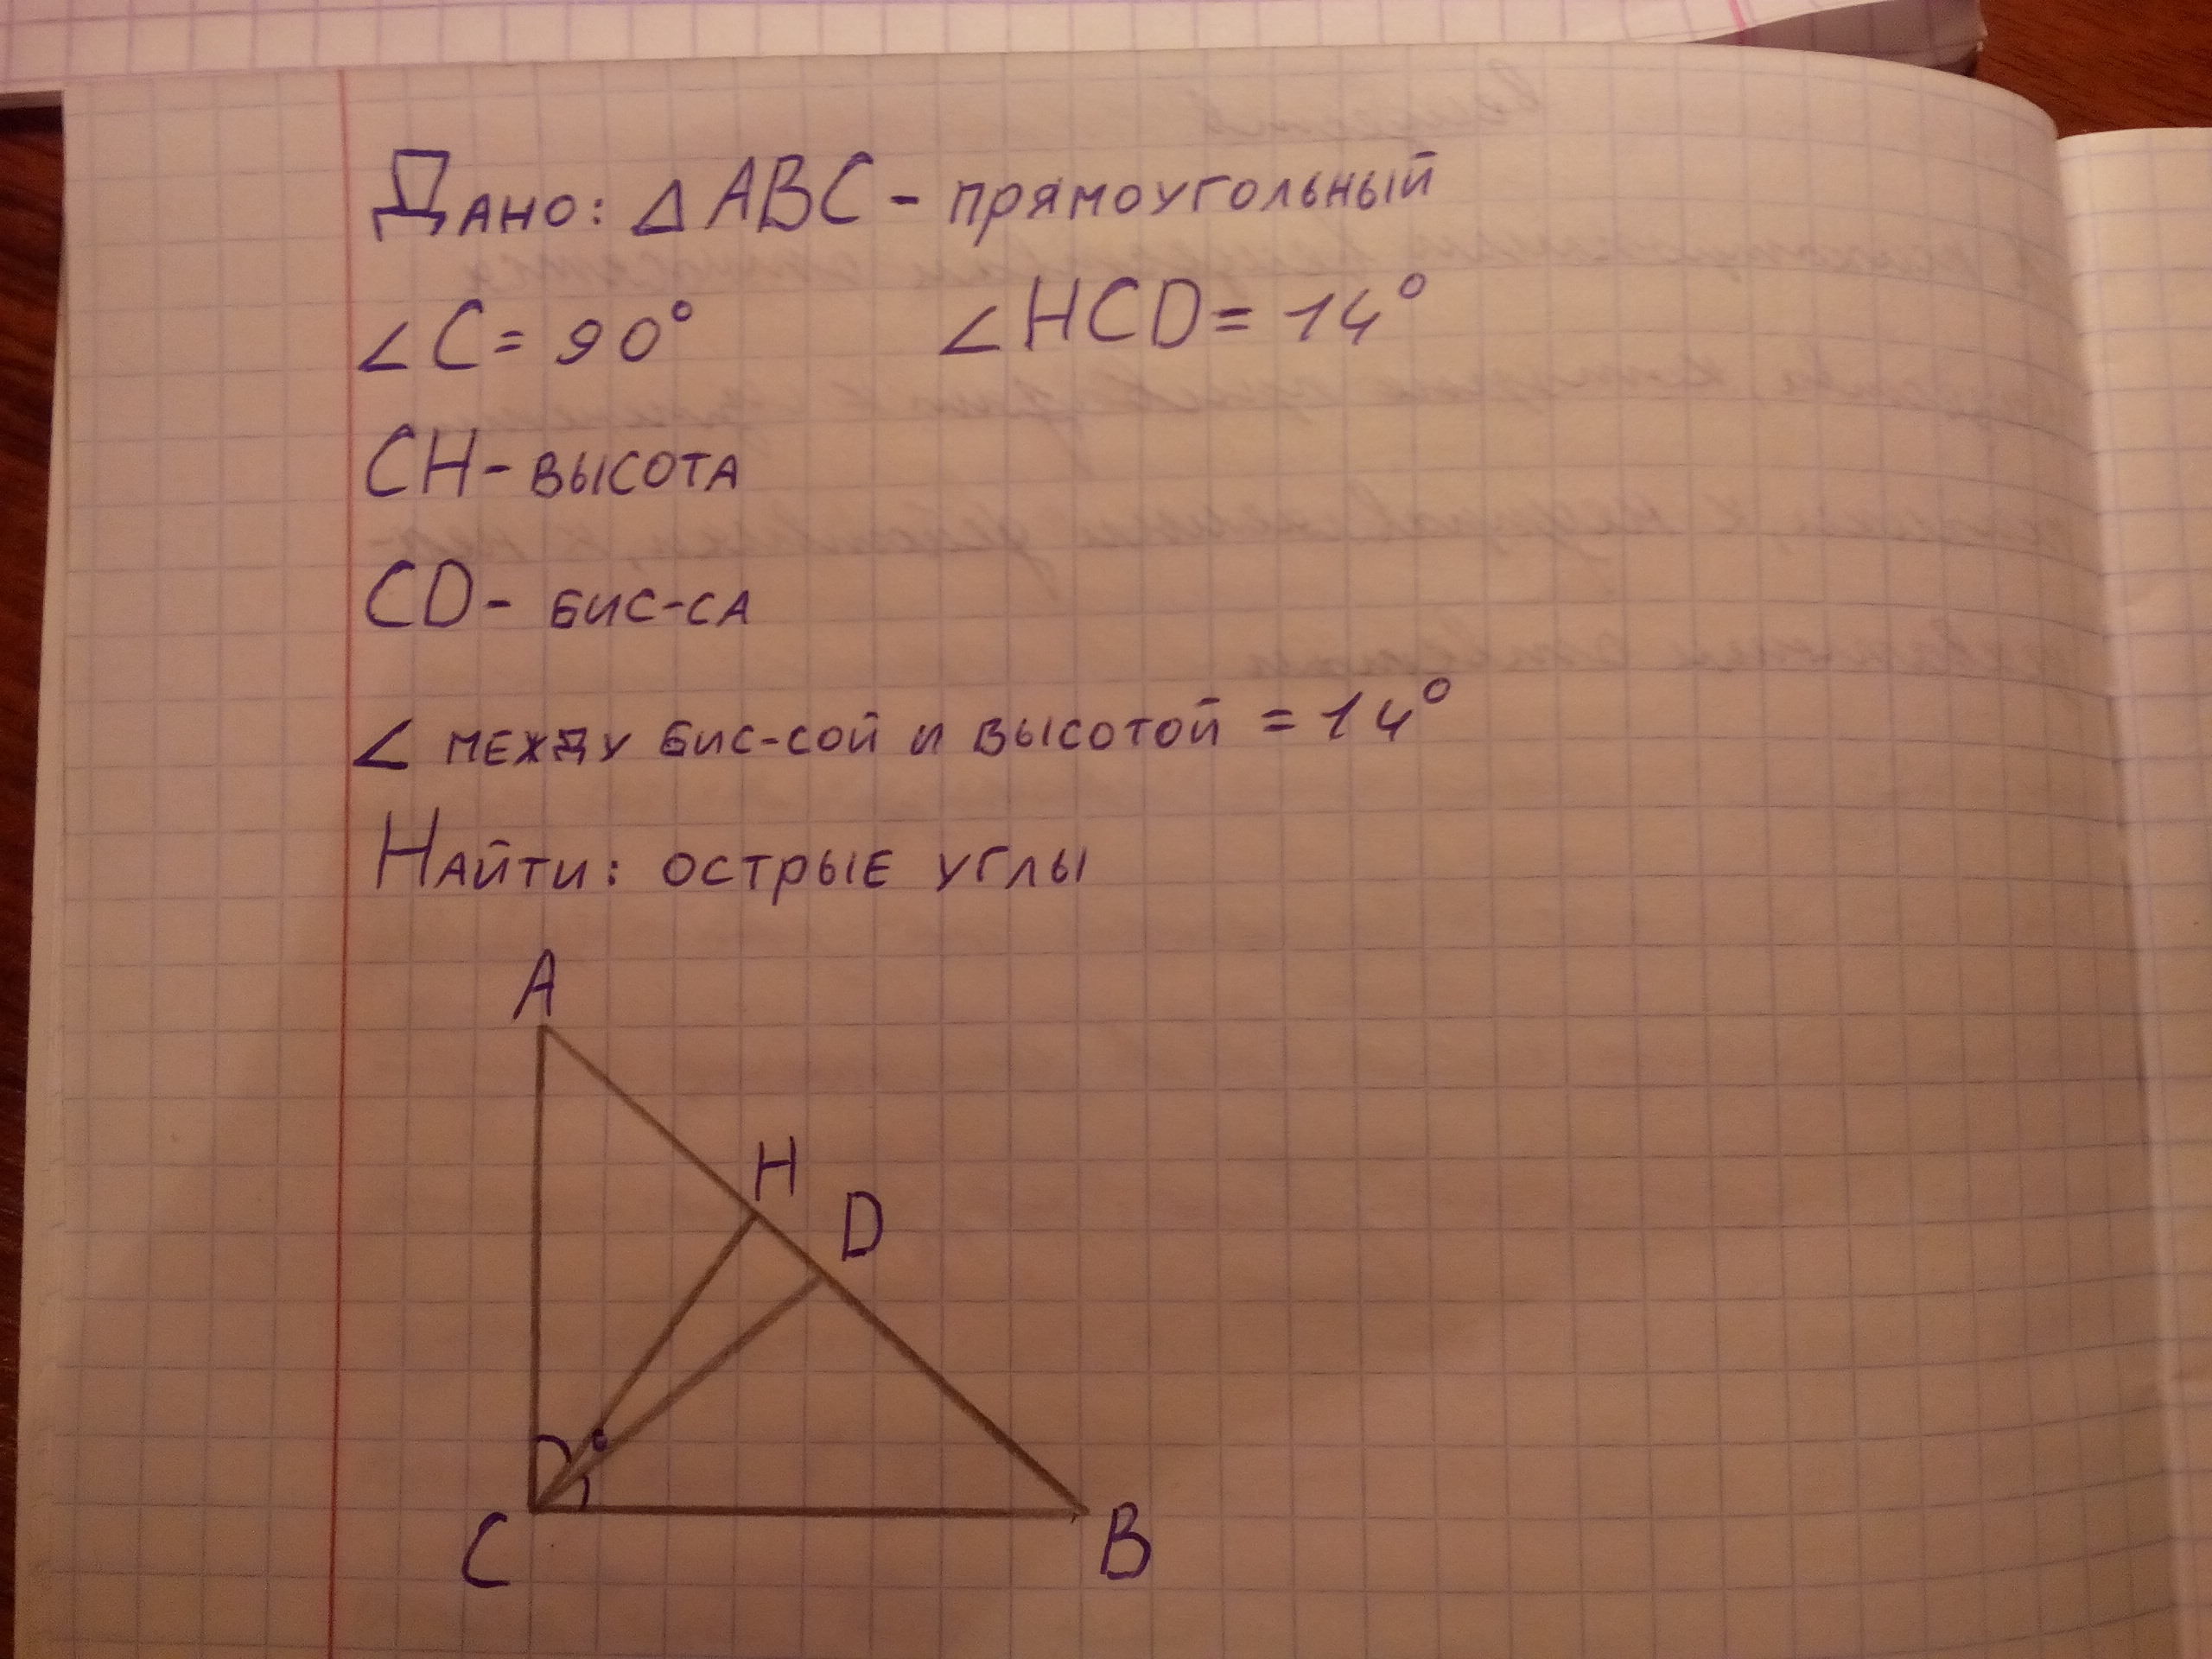 Дано: △ABC - прямоугольный
∠C = 90° ∠HCD = 14°
CH - высота
CD - бис-са
∠ между бис-сой и высотой = 14°
Найти: острые углы
A
H
D
C
B